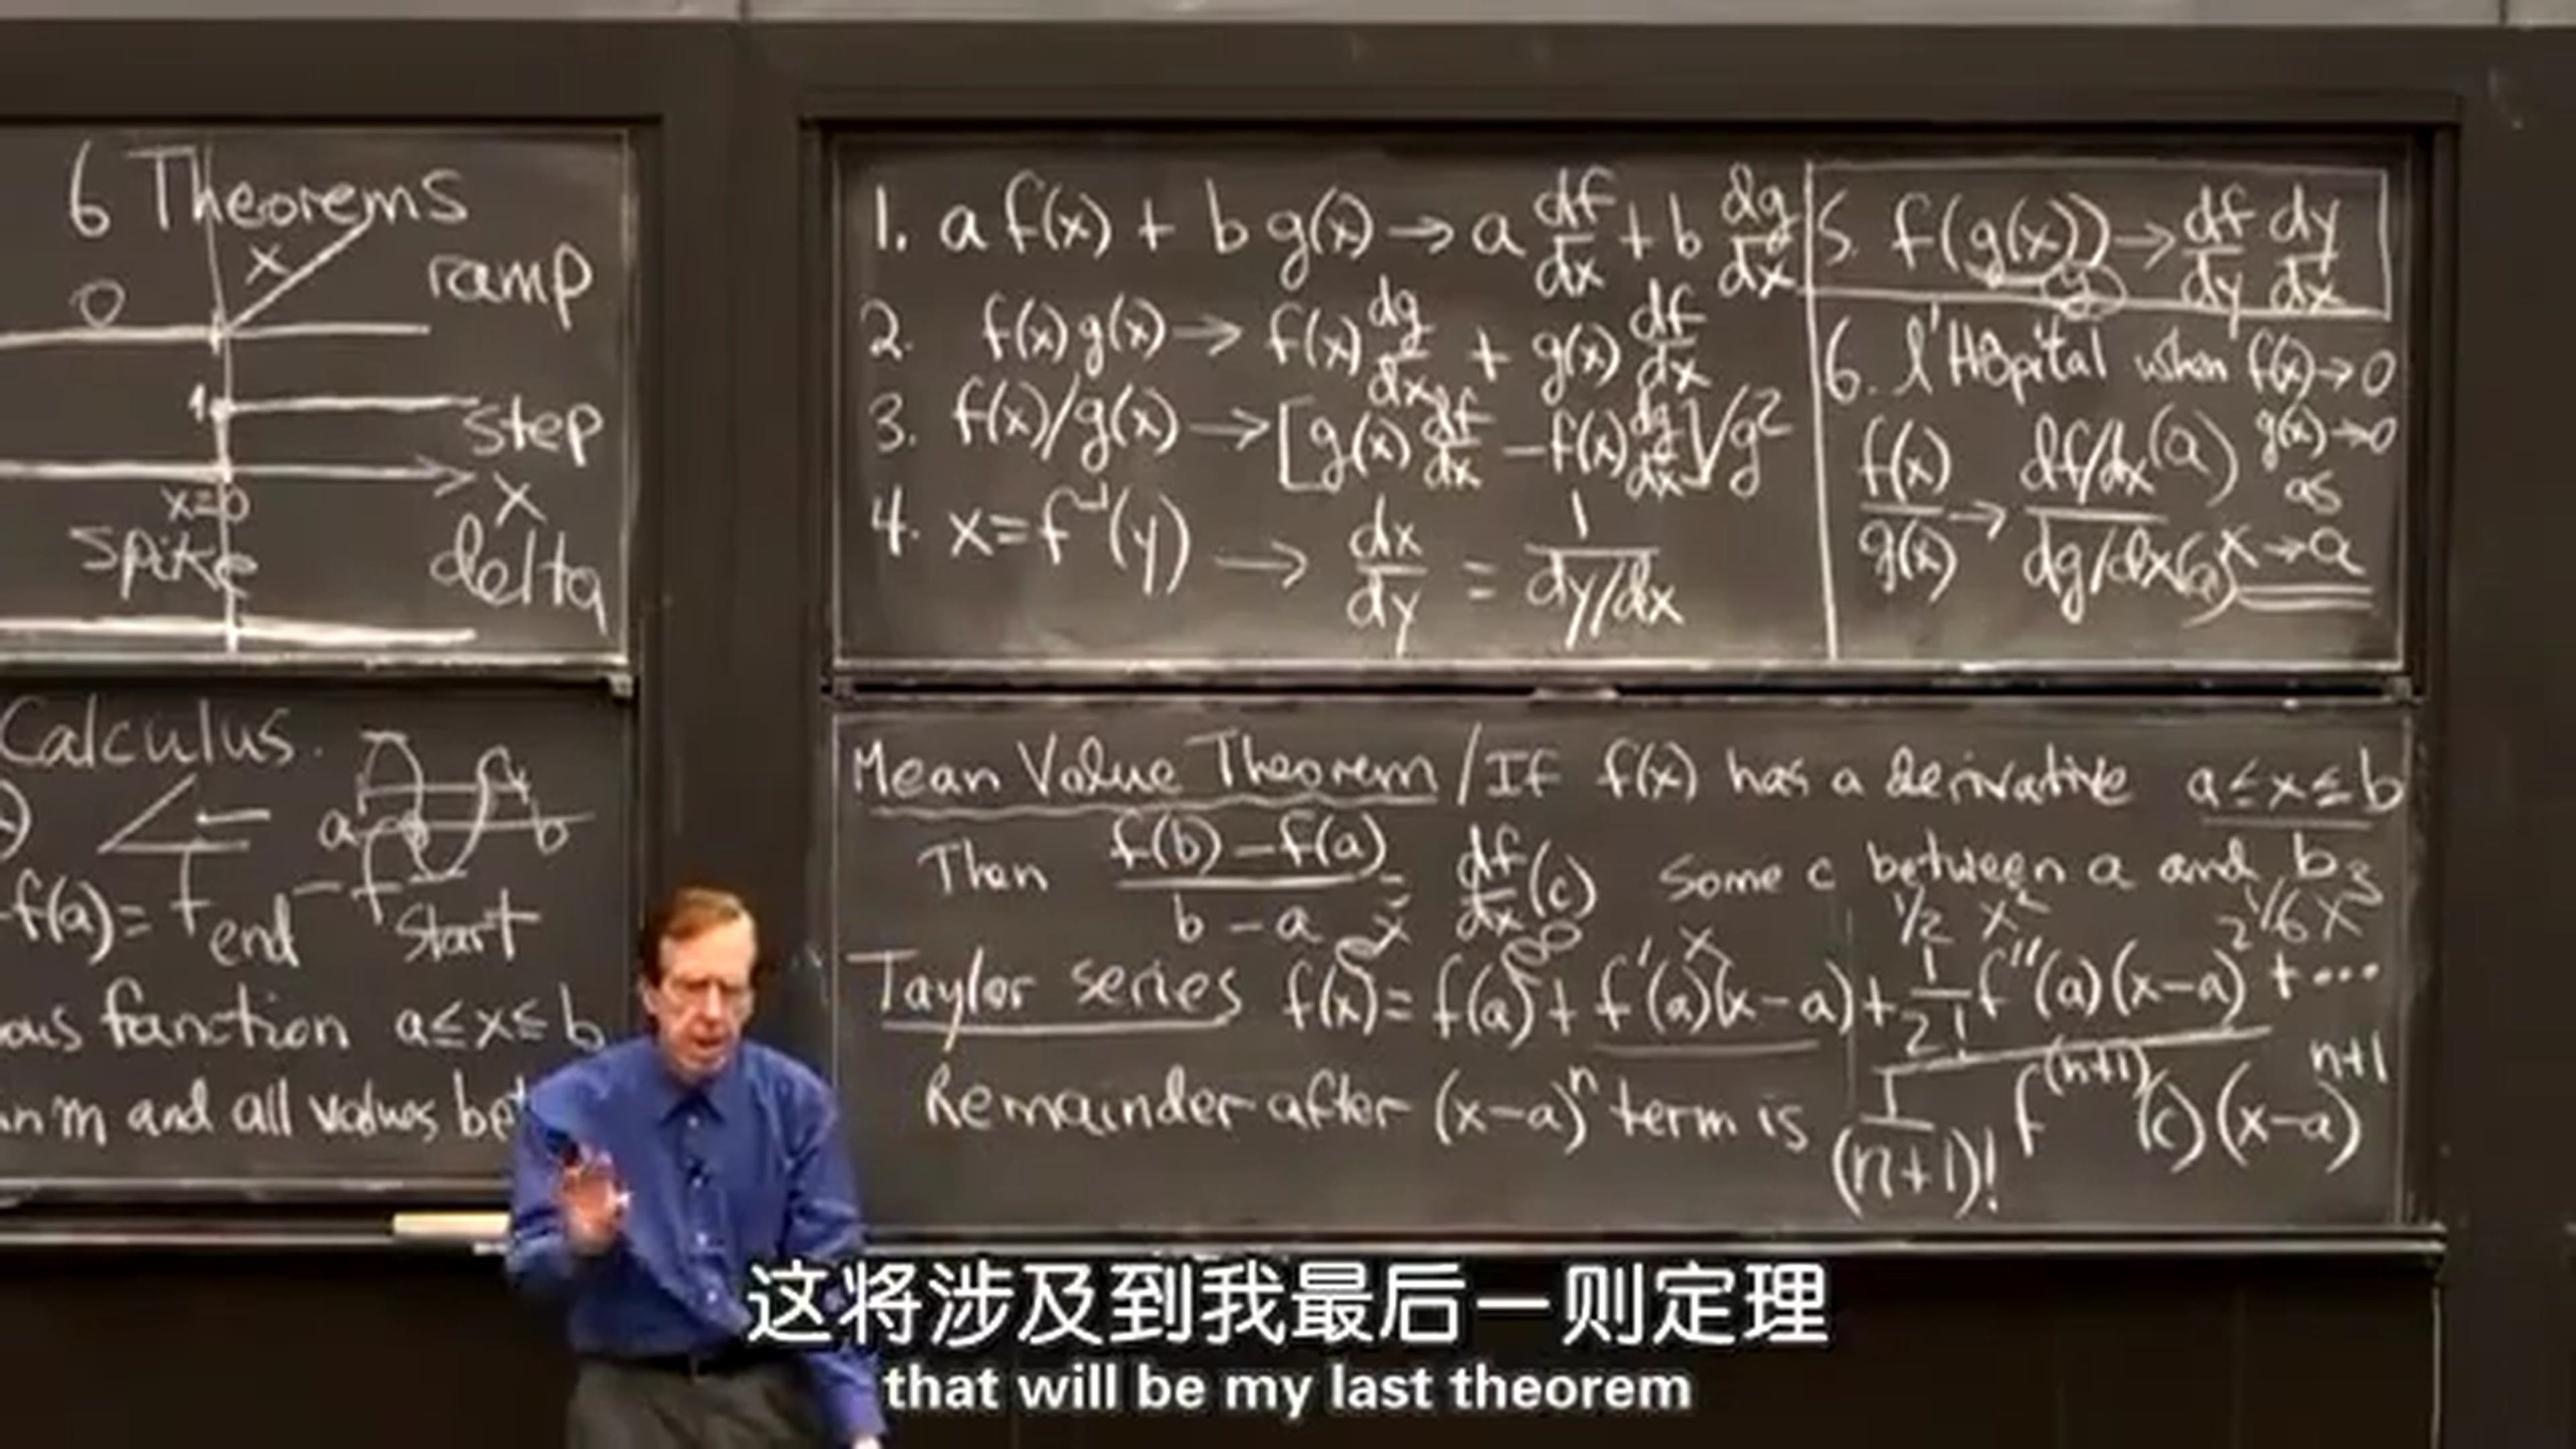 6 Theorems
0 x ramp
1 step
x=0 x
spike delta
Calculus.
a b
f(a) = f end - f start
function a≤x≤b
m and all values
1. a f(x) + b g(x) → a df/dx + b dg/dx
2. f(x) g(x) → f(x) dg/dx + g(x) df/dx
3. f(x)/g(x) → [g(x) df/dx - f(x) dg/dx]/g²
4. x = f⁻¹(y) → dx/dy = 1/(dy/dx)
5. f(g(x)) → df/dy dy/dx
y
6. l'Hôpital when f(x) → 0
g(x) → 0
as
x → a
f(x)/g(x) → df/dx(a) / dg/dx(a)
Mean Value Theorem / If f(x) has a derivative a≤x≤b
Then (f(b) - f(a))/(b - a) = df/dx (c) some c between a and b
x 0 0 x 1/2 x² 1/6 x³
Taylor series f(x) = f(a) + f'(a)(x-a) + 1/2! f''(a)(x-a)² + ...
Remainder after (x-a)ⁿ term is 1/(n+1)! f⁽ⁿ⁺¹⁾(c)(x-a)ⁿ⁺¹
这将涉及到我最后一则定理
that will be my last theorem